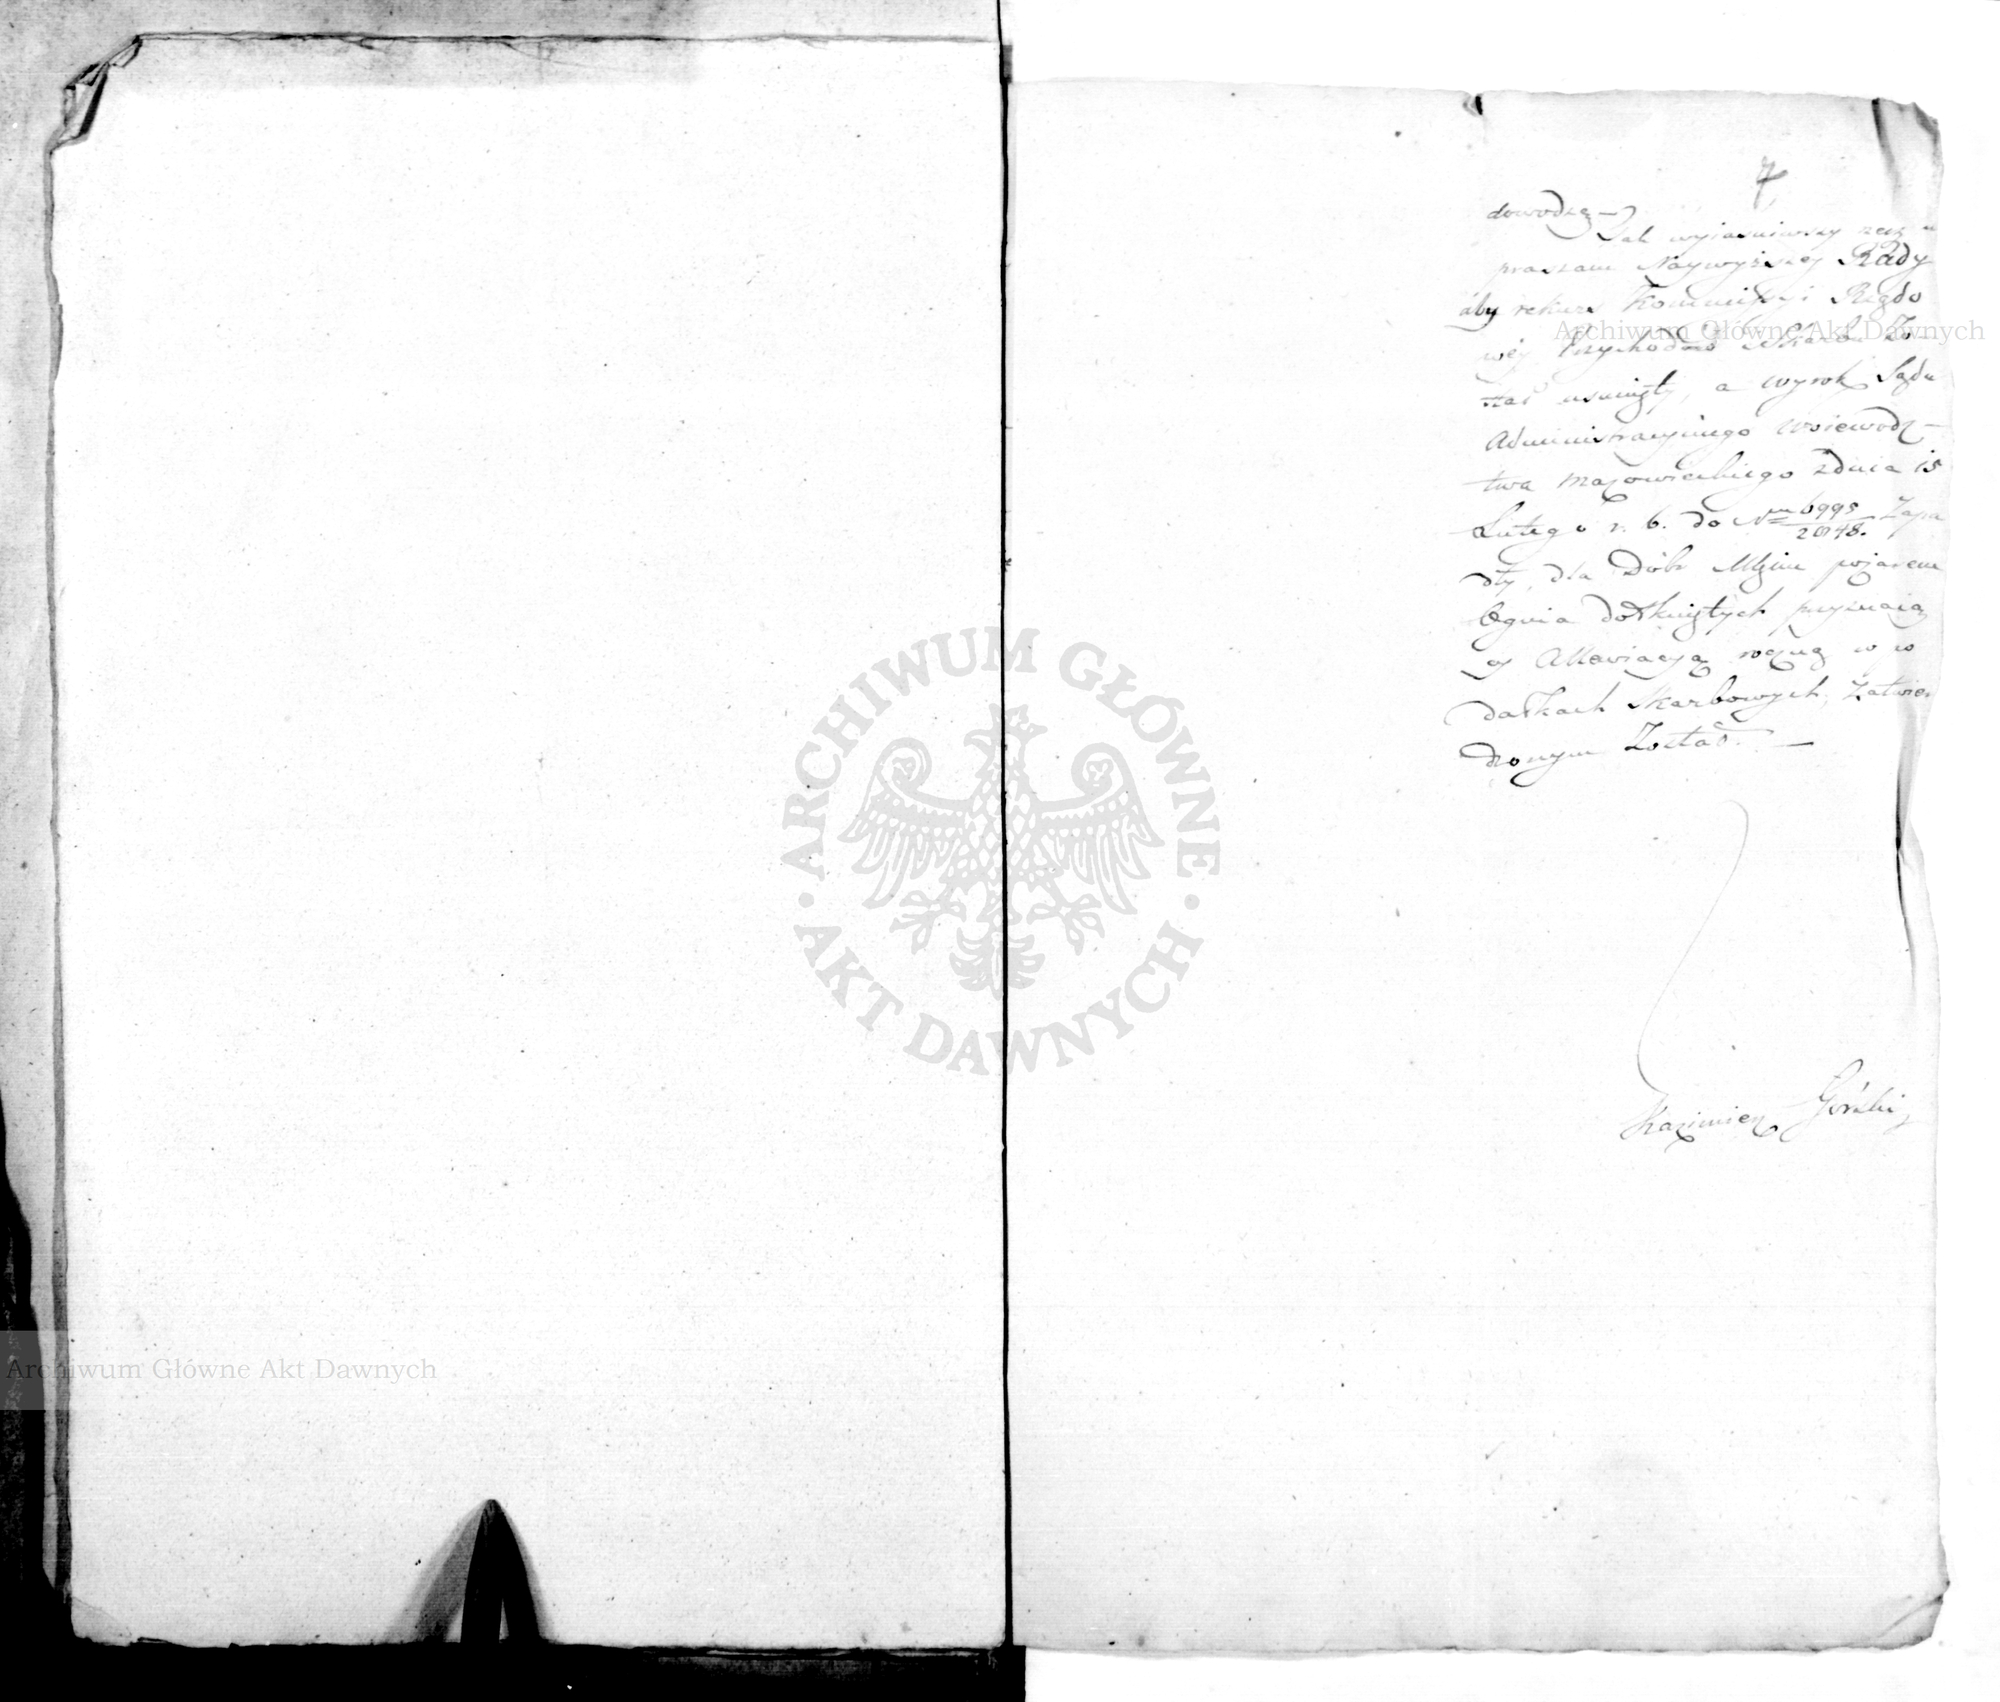 7
dowodzę —
Tak wyiaśniwszy rzecz u
praszam Naywyższey Rady
aby rekurs Kommissyi Rządo
wéy Przychodów i Skarbu Zo-
stał usunięty, a wyrok Sądu
Administracyinego Woiewodz-
twa Mazowieckiego z dnia 15
Lutego r. b. do Nru 6995/2048. Zapa
dły, dla Dóbr Mlęin pożarem
Ognia dotkniętych przyznaią
cy Allewiacyą roczną w po
datkach Skarbowych, Zatwier
dzonym Został. —
Kazimierz Górski
ARCHIWUM GŁÓWNE
AKT DAWNYCH
Archiwum Główne Akt Dawnych
Archiwum Główne Akt Dawnych